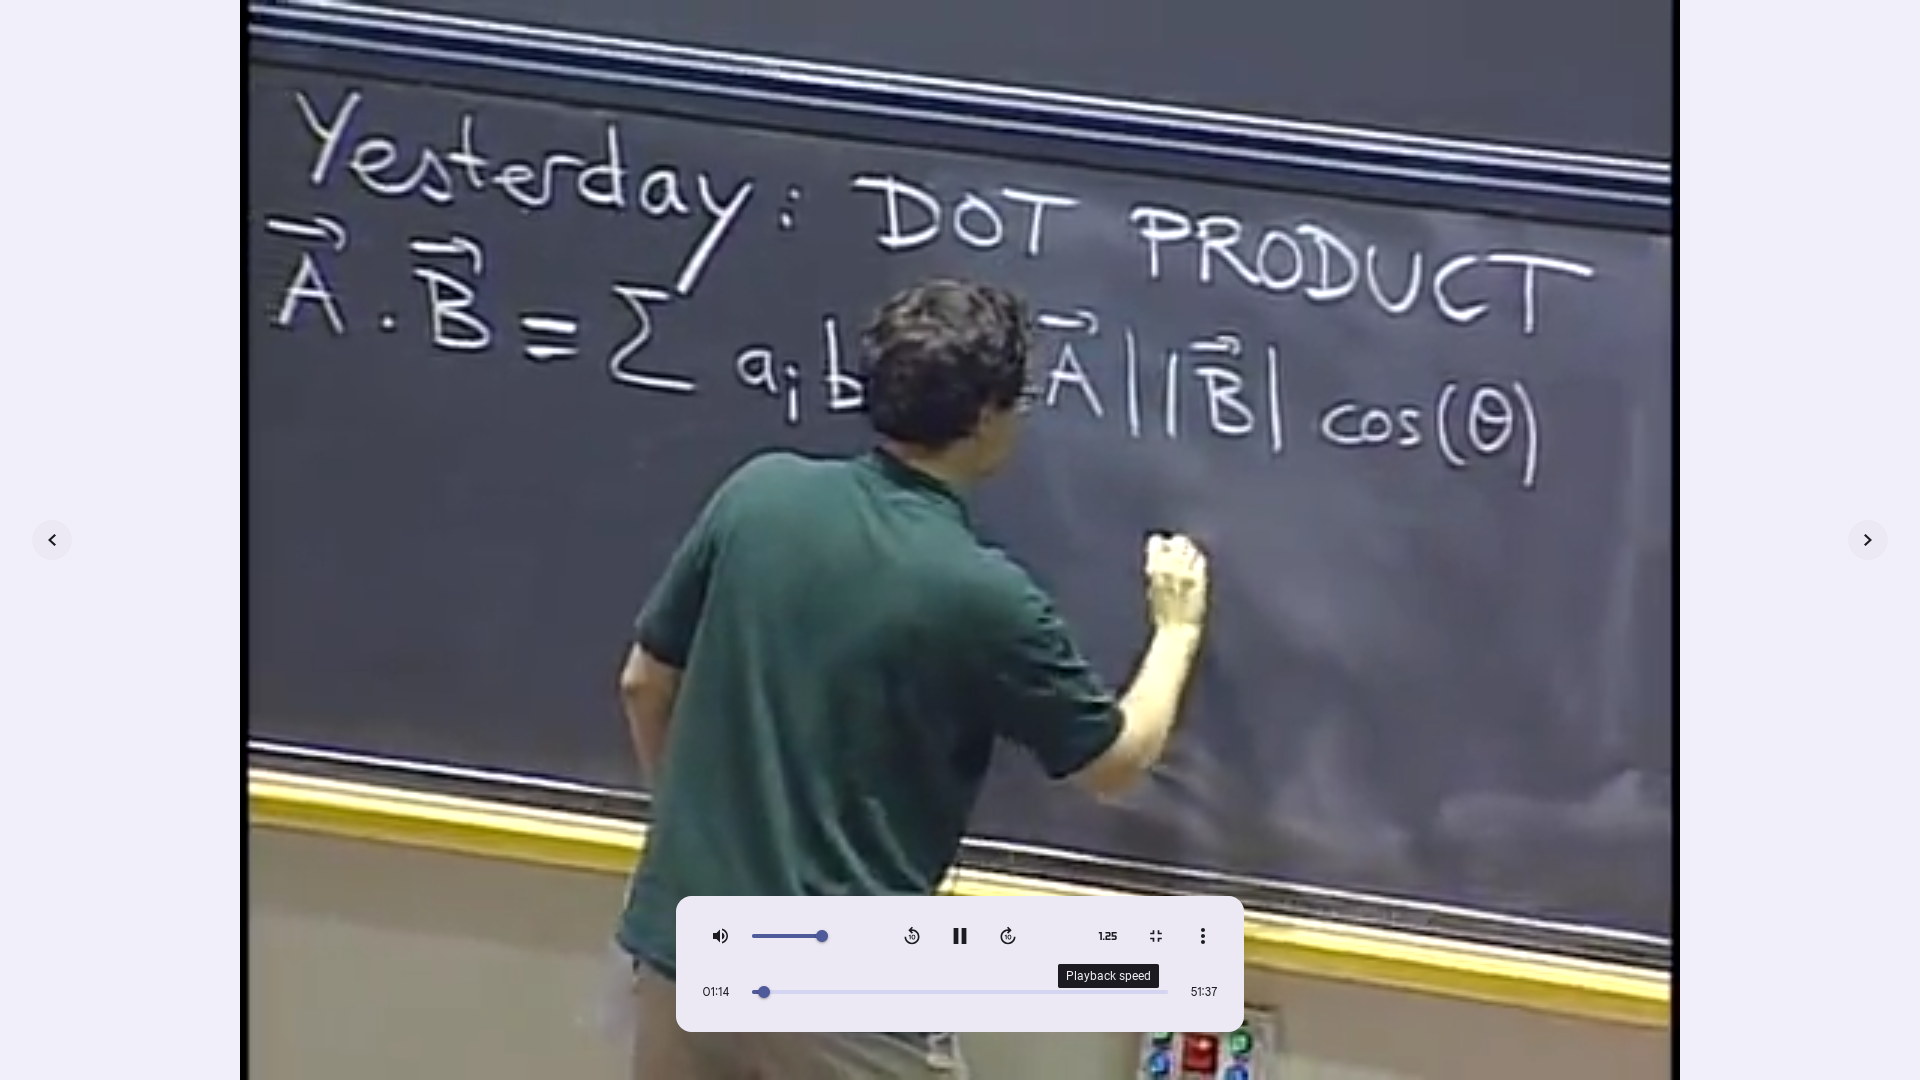 Yesterday: DOT PRODUCT
A · B = Σ aᵢb A||B| cos(θ)
1.25
Playback speed
01:14 51:37